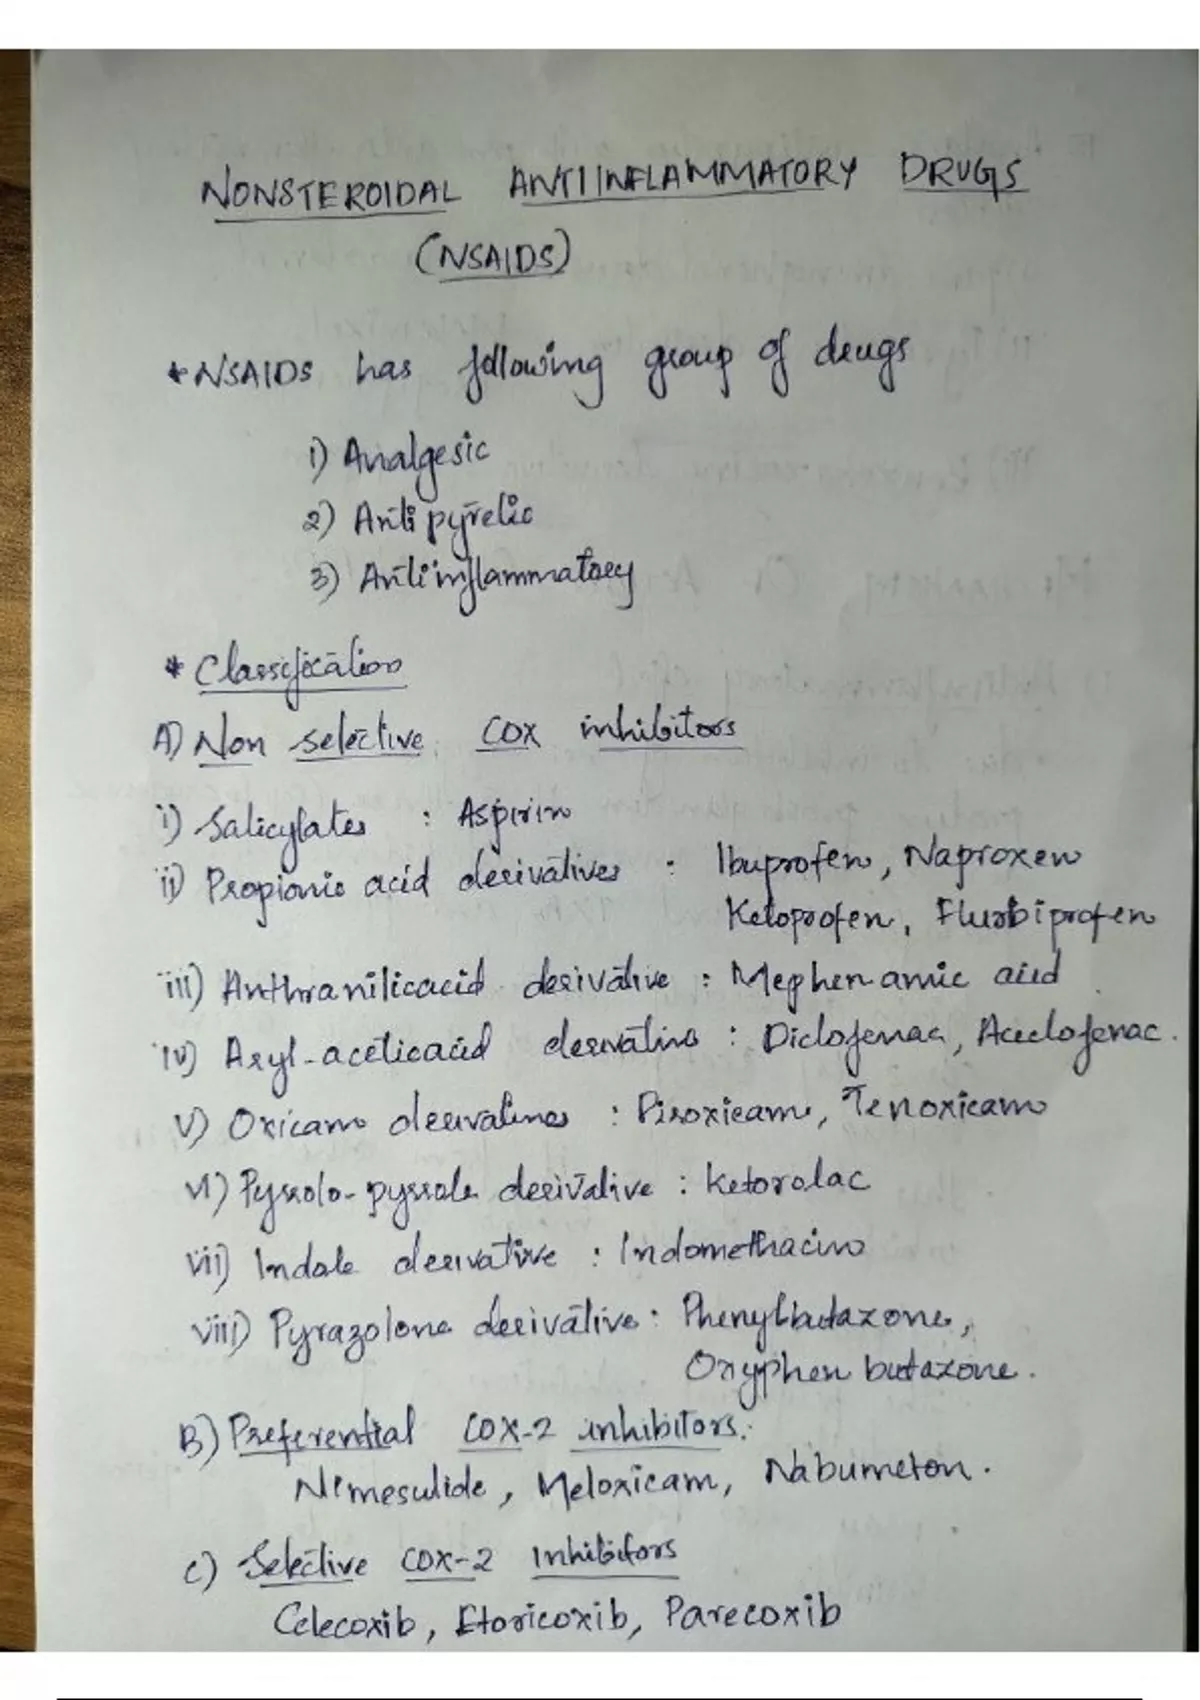 NONSTEROIDAL ANTIINFLAMMATORY DRUGS
(NSAIDS)
* NSAIDS has following group of drugs
1) Analgesic
2) Antipyretic
3) Antiinflammatory
* Classification
A) Non selective COX inhibitors
i) Salicylates : Aspirin
ii) Propionic acid derivatives : Ibuprofen, Naproxen
Ketoprofen, Flurbiprofen
iii) Anthranilicacid derivative : Mephenamic acid
iv) Aryl-aceticacid derivatives : Diclofenac, Aceclofenac.
V) Oxicam derivatives : Piroxicam, Tenoxicam
vi) Pyrrolo-pyrrole derivative : Ketorolac
vii) Indole derivative : Indomethacin
viii) Pyrazolone derivative : Phenylbutazone,
Oxyphenbutazone.
B) Preferential COX-2 inhibitors.
Nimesulide, Meloxicam, Nabumeton.
C) Selective COX-2 Inhibitors
Celecoxib, Etoricoxib, Parecoxib